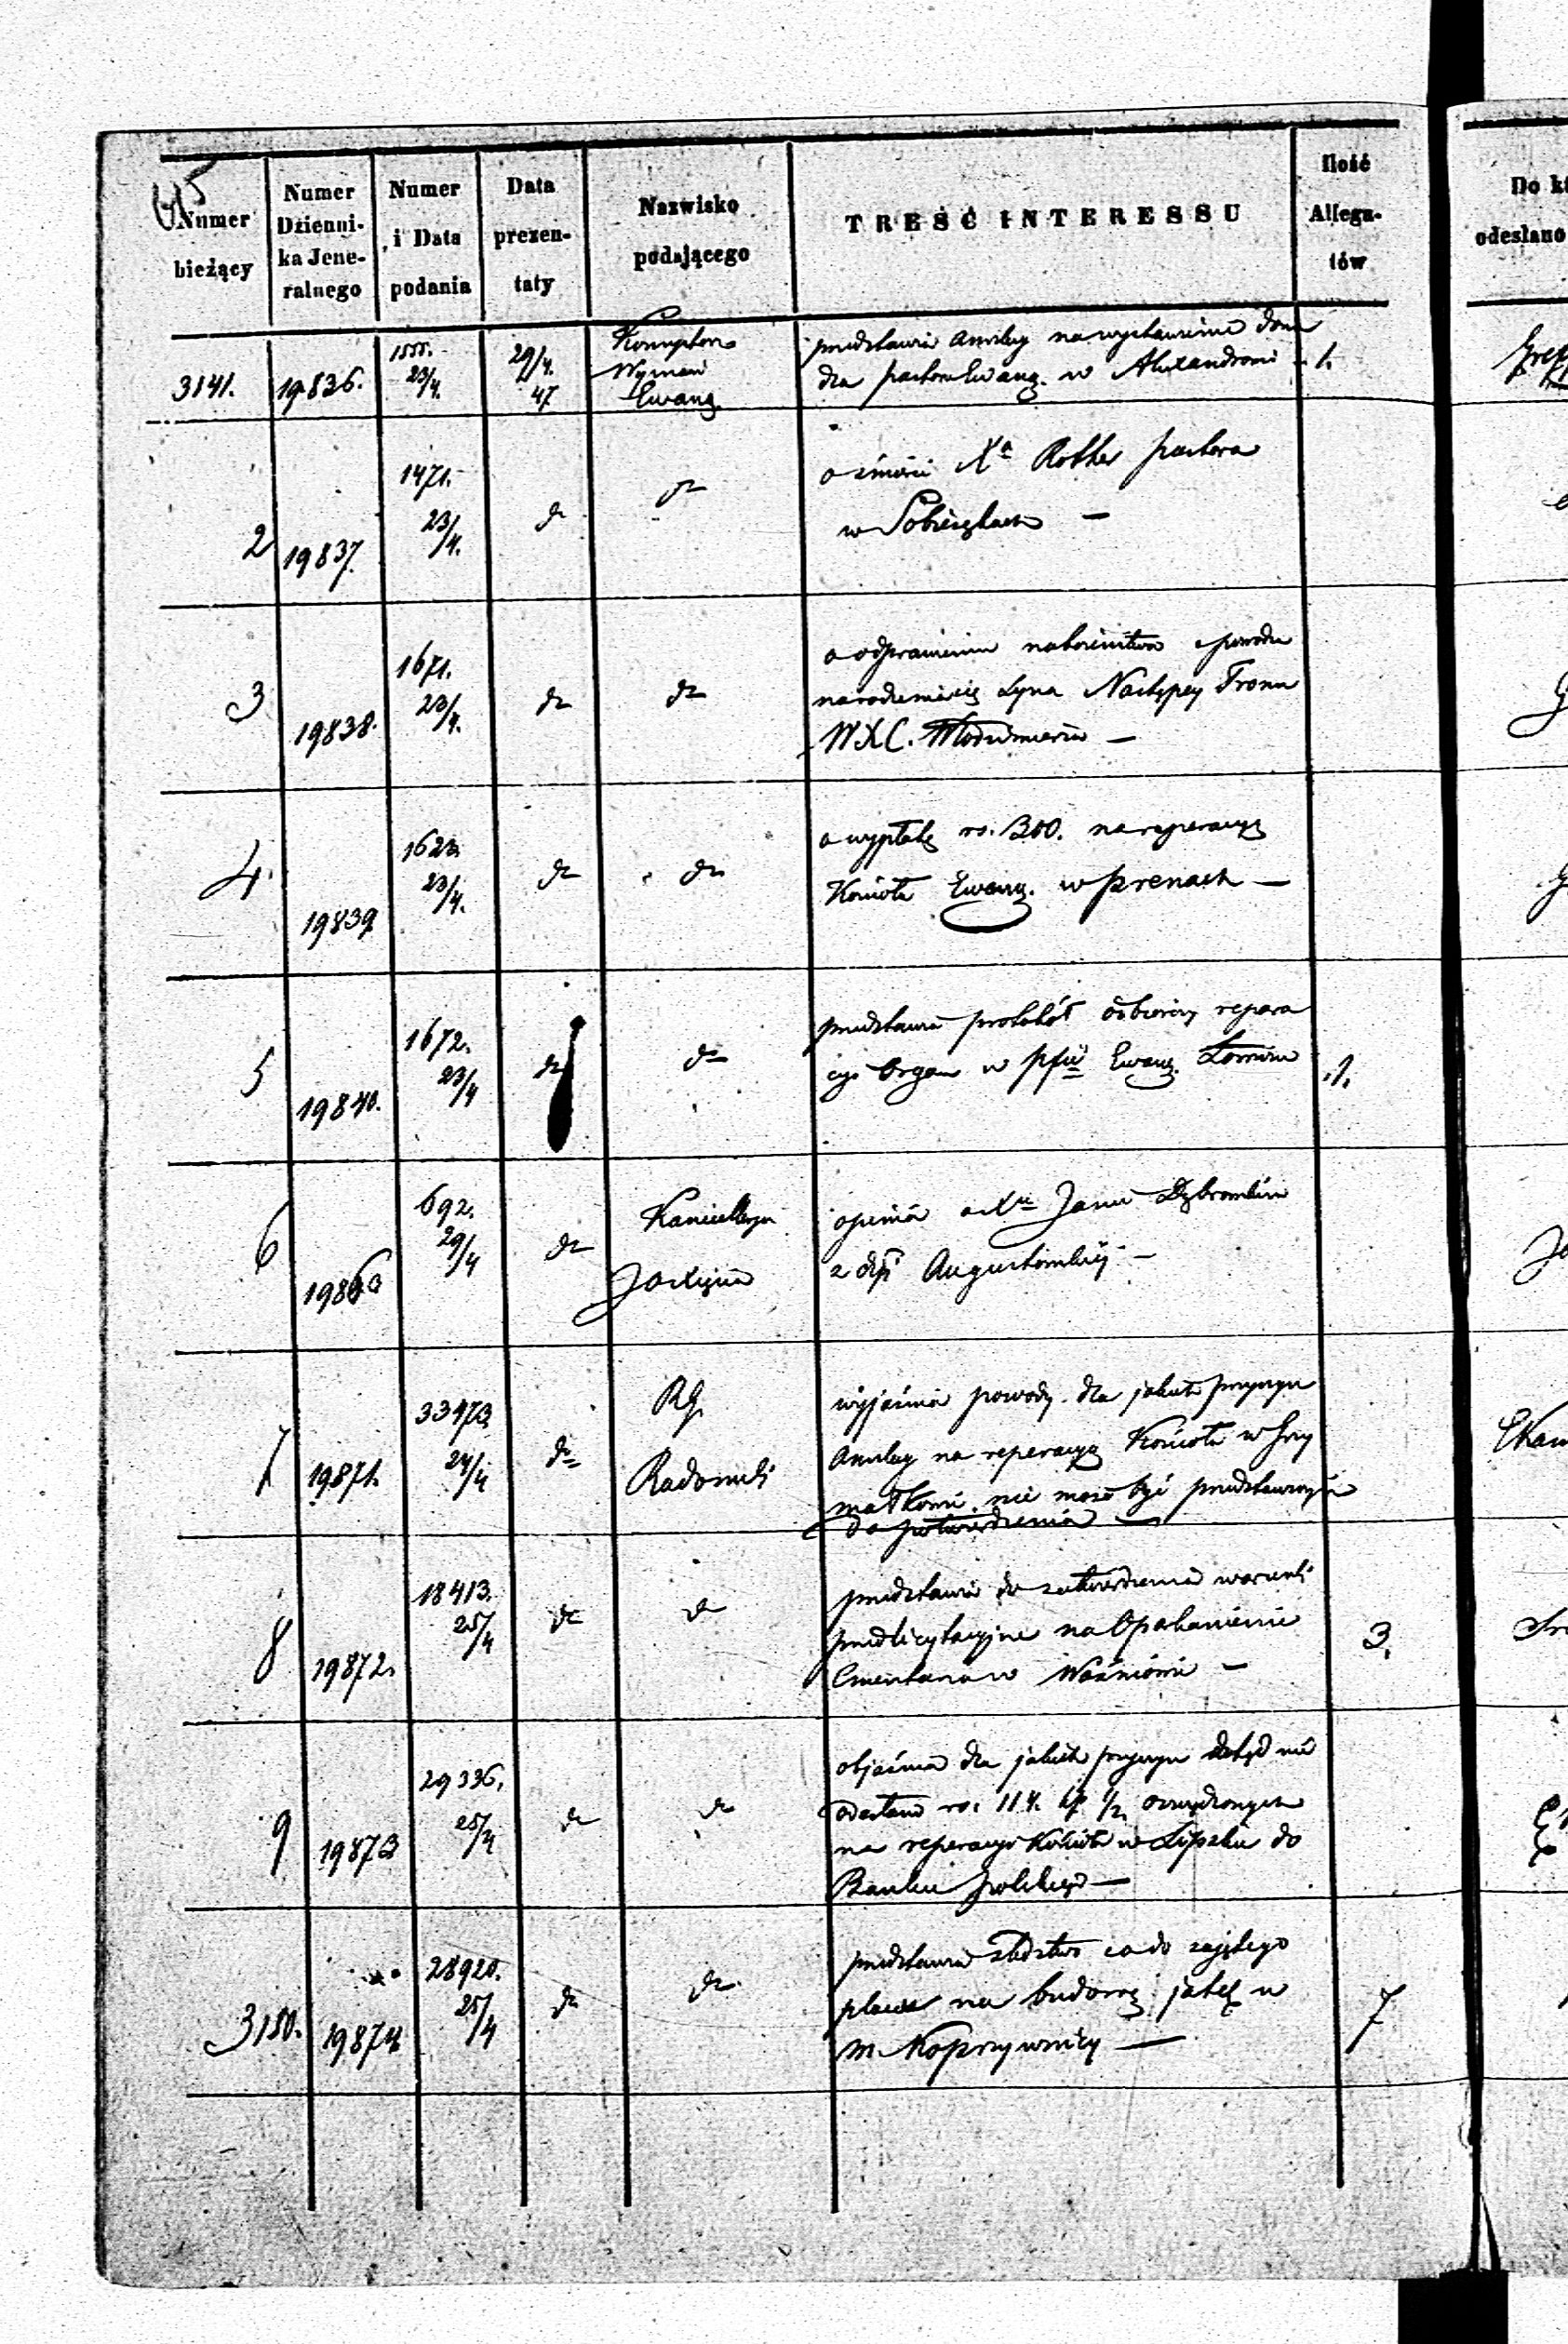 65
Numer bieżący | Numer Dzienni- ka Jene- ralnego | Numer i Data podania | Data prezen- taty | Nazwisko podającego | TREŚĆ INTERESSU | Ilość Allega- tów
3141. | 19836. | 1555. 23/4. | 29/4. 47 | Konsystor Wyznań Ewang. | przedstawia Anszlag na wystawienie domu
dla pastora Ewang. w Alexandrowie | 1.
2 | 19837. | 1471. 23/4. | do | do | o śmierci Xa Rother pastora
w Sobieskach —
3 | 19838. | 1671. 23/4. | do | do | o odprawieniu nabożeństwa z powodu
narodzenia się Syna Następcy Tronu
W.X.C. Włodzimierza —
4. | 19839 | 1623. 23/4. | do | do | o wypłatę rs. 300. na reperacyę
Kościoła Ewang. w Prenach —
5 | 19840. | 1672. 23/4 | do | do | przedstawia protokół odbiorczy repara
cyi Organ w pfii Ewang. Łomża | 1.
6 | 19860 | 692. 29/4 | do | Kancellarya | opinia o Xu Janie
z dyi Augustowskiej —
7 | 19871. | 33473 24/4 | do | RG. Radomski | wyjaśnia powody dla jakich przyczyn
Anszlag na reperacyę Kościoła w
nie może być przedstawionym
do potwierdzenia —
8 | 19872. | 18413. 25/4 | do | do | przedstawia do zatwierdzenia warunki
przedlicytacyjne na Oparkanienie
Cmentarza w Waśniowie — | 3.
9 | 19873 | 29336. 25/4 | do | do | objaśnia dla jakich przyczyn dotąd nie
odesłano rs. 114. kp. 1/2. oszczędzonych
na reperacyi Kościoła w Lipsku do
Banku Polskiego —
3150. | 19874 | 28920. 25/4 | do | do | przedstawia śledztwo co do zajętego
placu na budowę jatek w
m. Koprzywnicy — | 7
Do kt
odesłano